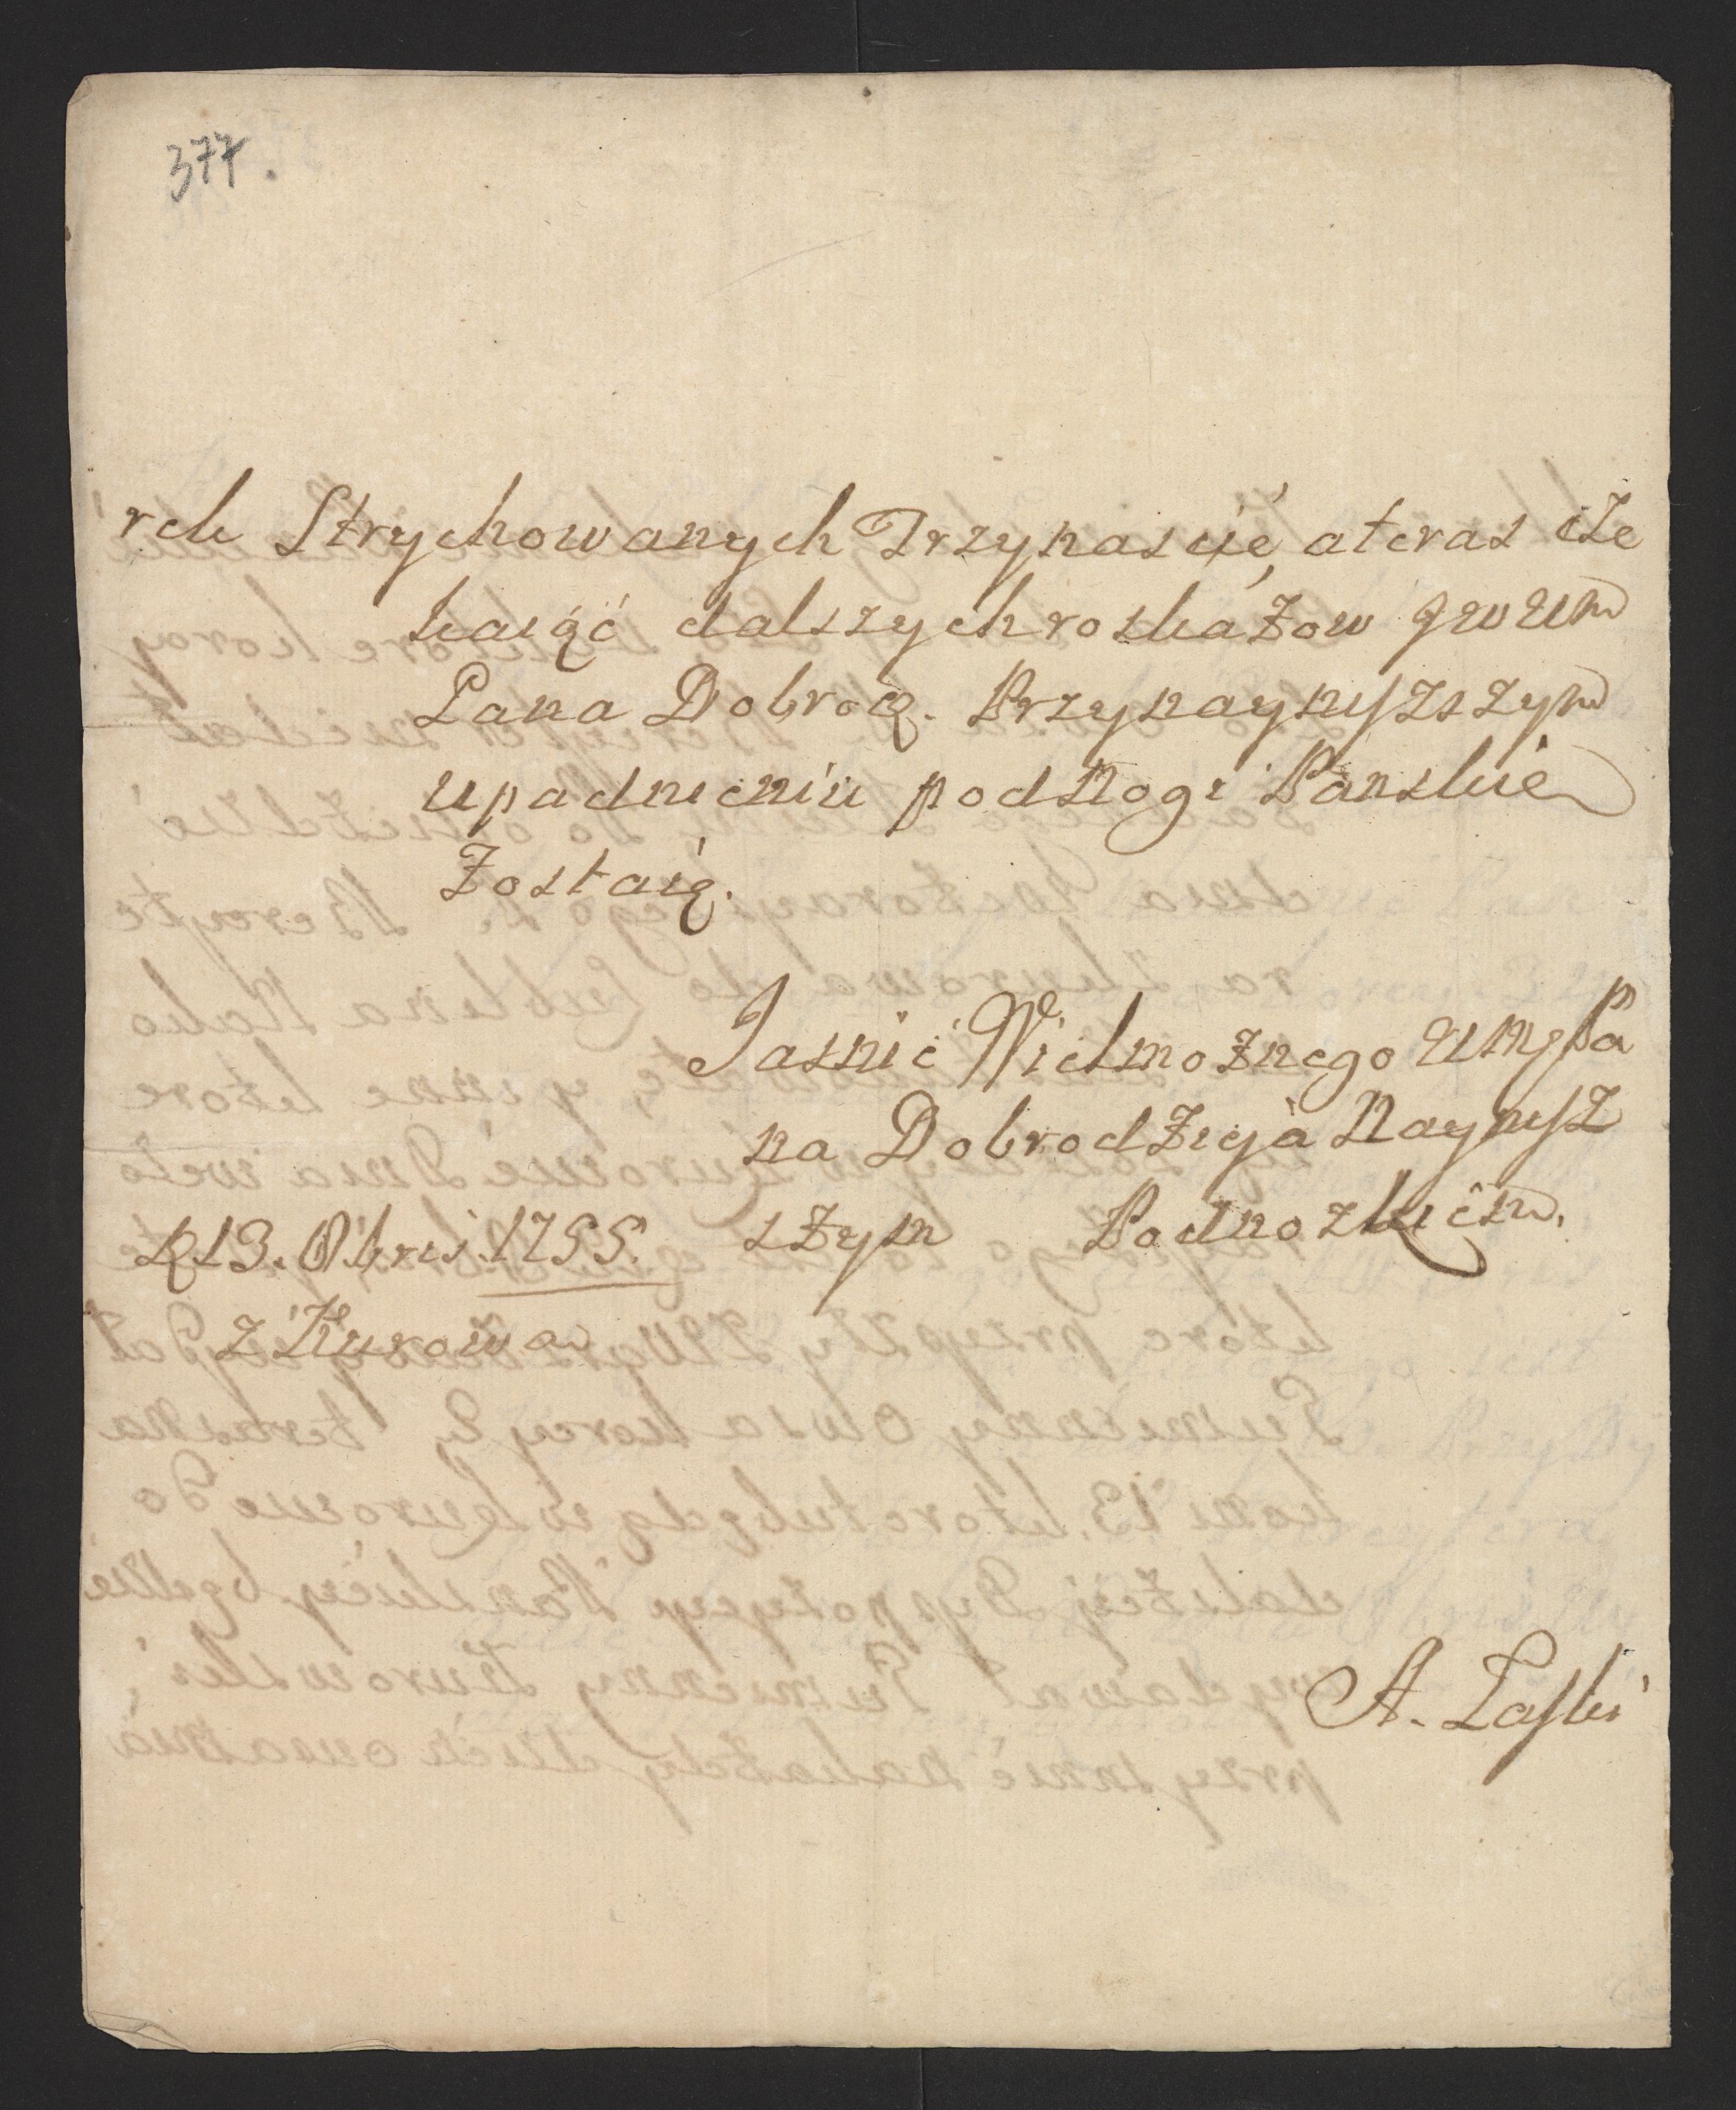 377.
rch Strychowanych Trzynascie, ateras cze
kaiąć dalszych roskazow JWWM
Pana Dobrodz. Przynaynyszszym
upadnieniu pod Nogi Panskie
Zostaię.
Jasnie Wielmoznego WMP Pa
na Dobrodzieja Naynysz
szym Podnozkiem.
D 13. Obris 1755.
z Kurowa
A. Laski